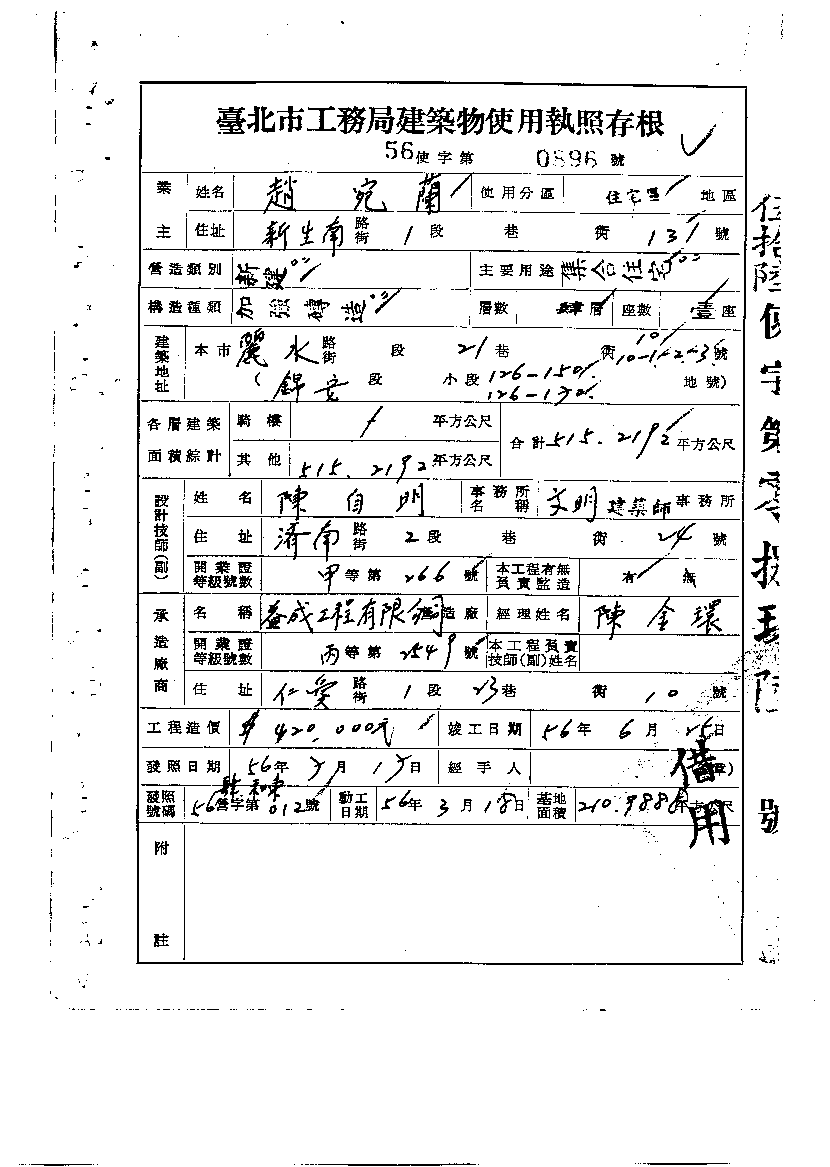 臺北市工務局建築物使用執照存根
56使字第 0896 號
業主 姓名 趙宛蘭 使用分區 住宅區 地區
住址 新生南路街 1段 巷 街 131號
營造類別 新建 主要用途 集合住宅
構造種類 加強磚造 層數 肆層 座數 壹座
建築地址 本市 麗水路街 段 21巷 街 10 10-1.-2.-3.號
(錦安段 小段 126-150 126-170 地號)
各層建築面積綜計 騎樓 平方公尺 合計 515.2192 平方公尺
其他 515.2192 平方公尺
設計技師(副) 姓名 陳自明 事務所名稱 文明建築師事務所
住址 濟南路街 2段 巷 街 24號
開業證等級號數 甲等第 266號 本工程有無負責監造 有 無
承造廠商 名稱 益成工程有限公司 營造廠 經理姓名 陳金環
開業證等級號數 丙等第 2549號 本工程負責技師(副)姓名
住址 仁愛路街 1段 23巷 街 10號
工程造價 $420,000元 竣工日期 56年 6月 25日
發照日期 56年 7月 17日 經手人 (章)
發照號碼 56營字第 012號 動工日期 56年 3月 18日 基地面積 210.9888平方公尺
附註
借用
伍拾陸使字第零捌玖陸號